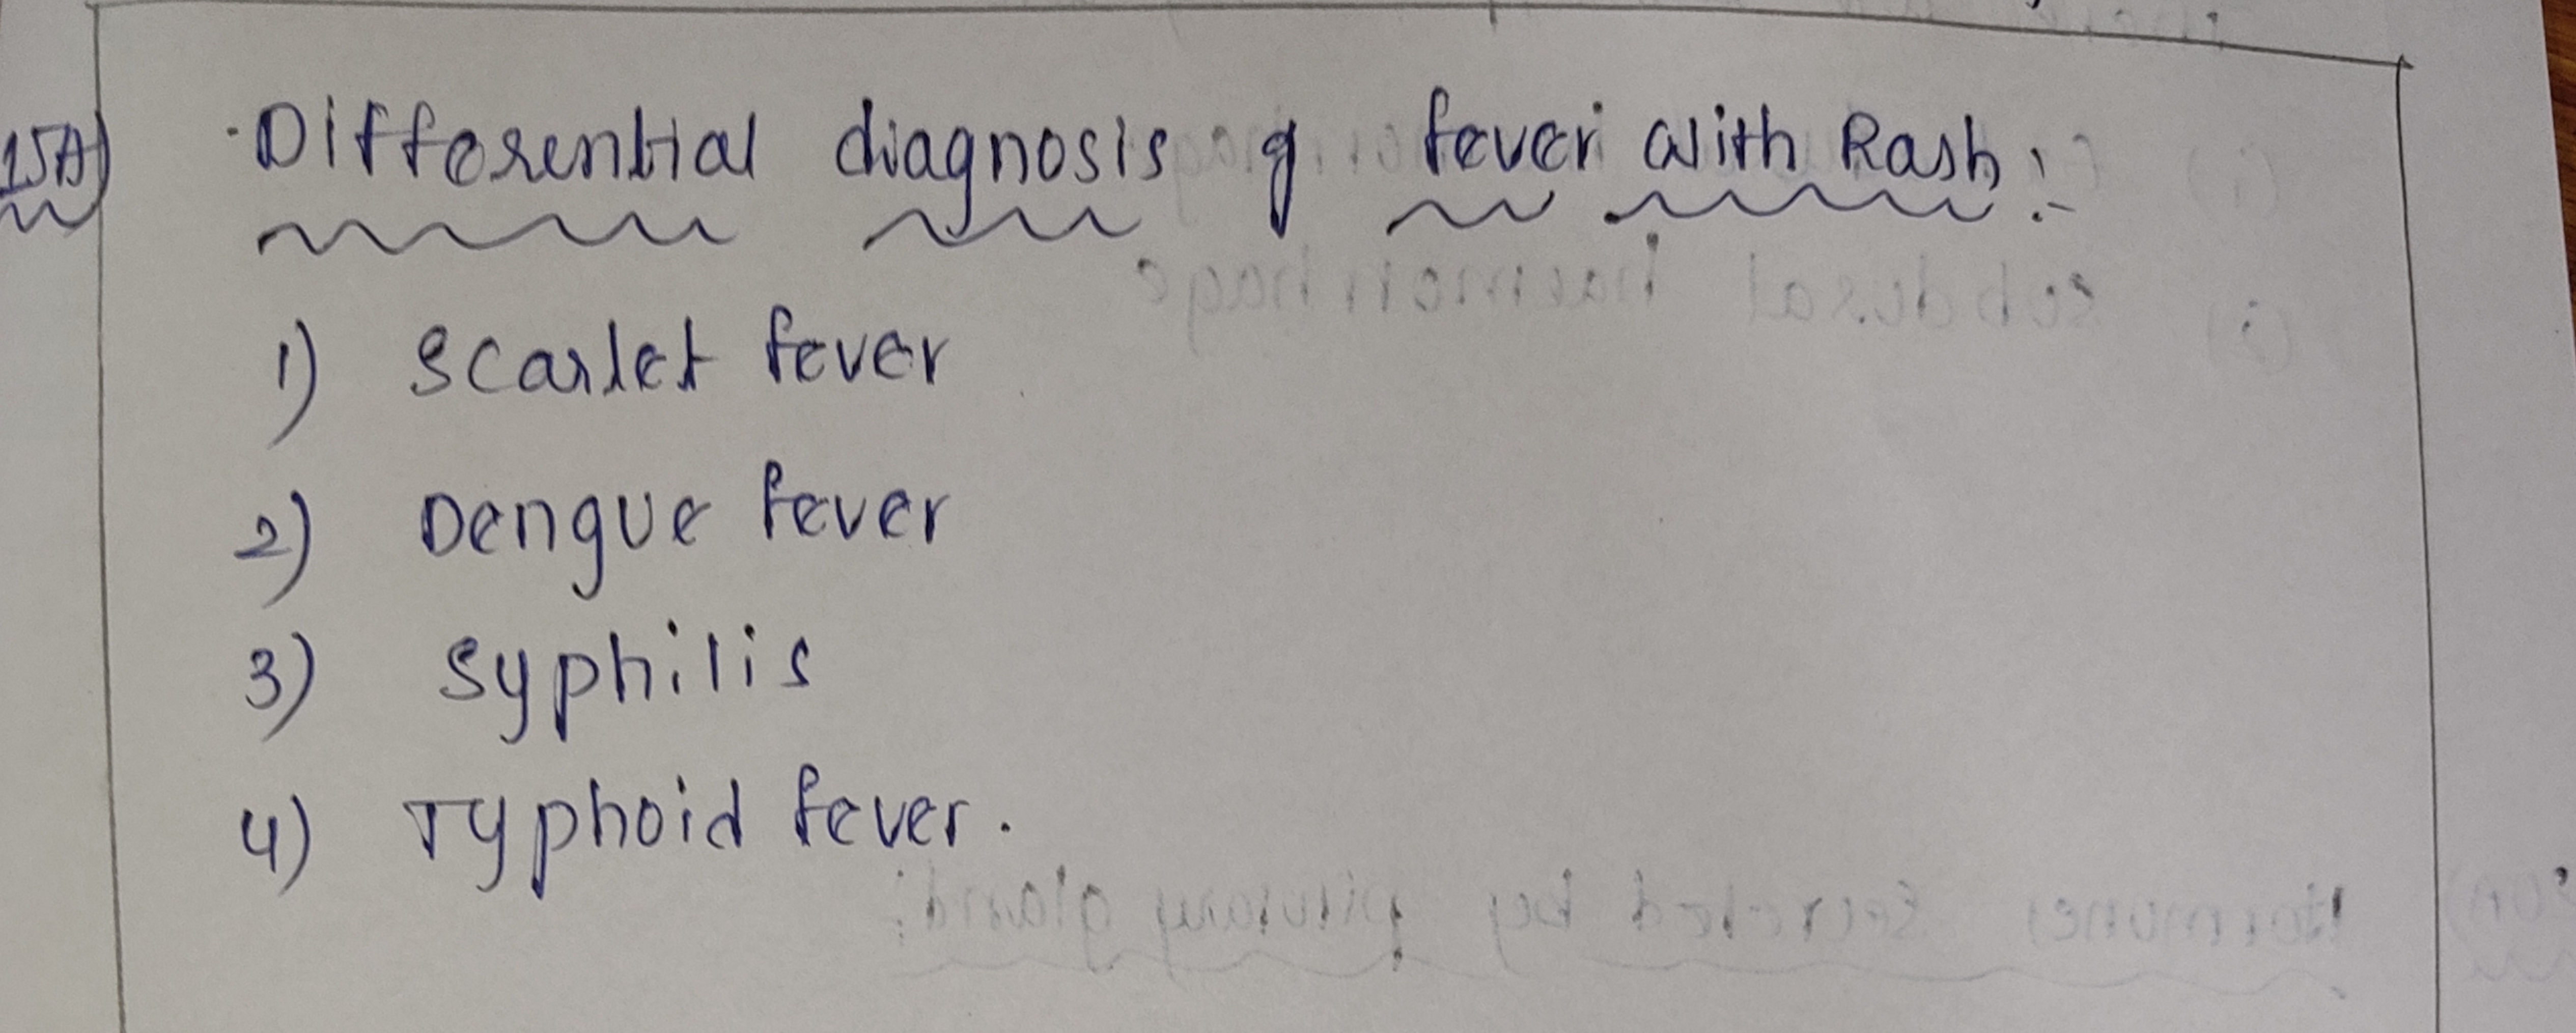 15A) Differential diagnosis of fever with Rash :-
1) scarlet fever
2) Dengue fever
3) syphilis
4) Typhoid fever.